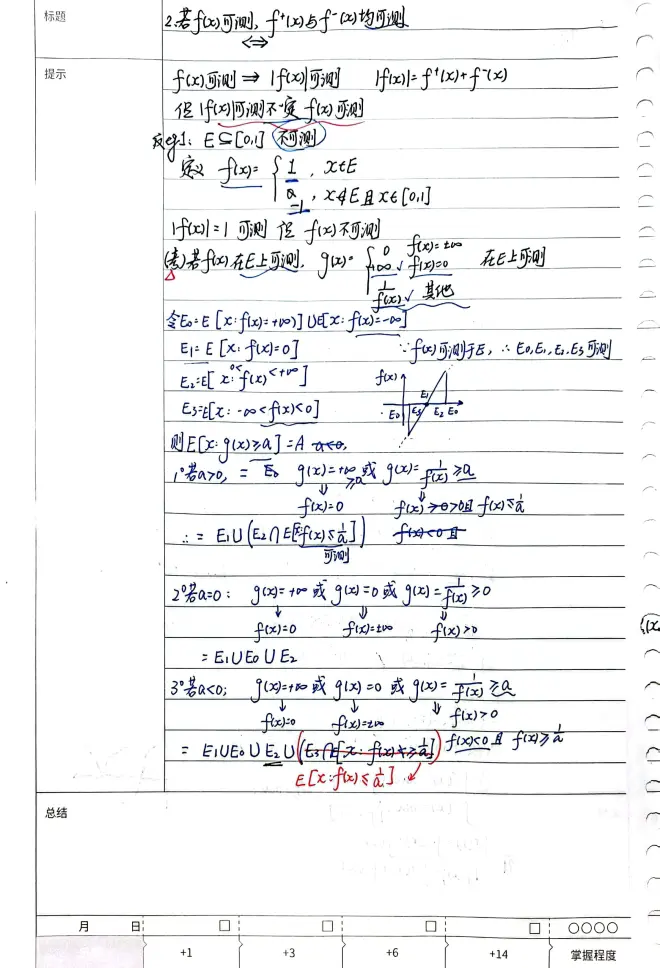 标题
2.若f(x)可测, f⁺(x)与f⁻(x)均可测
⇔
提示
f(x)可测 ⇒ |f(x)|可测 |f(x)|=f⁺(x)+f⁻(x)
但|f(x)|可测不一定 f(x)可测
反eg1: E⊆[0,1] 不可测
定义 f(x)= { 1 , x∈E
-1 , x∉E且x∈[0,1]
|f(x)|=1 可测 但 f(x)不可测
若f(x)在E上可测, g(x)= { 0 f(x)=±∞
+∞ f(x)=0 在E上可测
1/f(x) 其他
令E₀=E[x:f(x)=+∞]∪E[x:f(x)=-∞]
E₁=E[x:f(x)=0] ∵f(x)可测于E, ∴E₀,E₁,E₂,E₃可测
E₂=E[x:0<f(x)<+∞] f(x)
E₃=E[x:-∞<f(x)<0] E₀ E₃ E₁ E₂ E₀
则E[x:g(x)≥a]=A a<0,
1°若a>0, = E₀ g(x)=+∞≥a或 g(x)=1/f(x)≥a
⇓ ⇓
f(x)=0 f(x)>0且 f(x)≤1/a
∴ = E₁∪(E₂∩E[x:f(x)≤1/a]) f(x)<0且
可测
2°若a=0: g(x)=+∞或 g(x)=0或 g(x)=1/f(x)≥0
↓ ⇓ ↓
f(x)=0 f(x)=±∞ f(x)>0
=E₁∪E₀∪E₂
3°若a<0: g(x)=+∞或 g(x)=0 或 g(x)=1/f(x)≥a
↓ ↓ ⇓
f(x)=0 f(x)=±∞ f(x)>0
= E₁∪E₀∪E₂∪(E₃∩E[x:f(x)≥1/a]) f(x)<0且 f(x)≥1/a
E[x:f(x)≤1/a]
总结
月 日
+1 +3 +6 +14 掌握程度